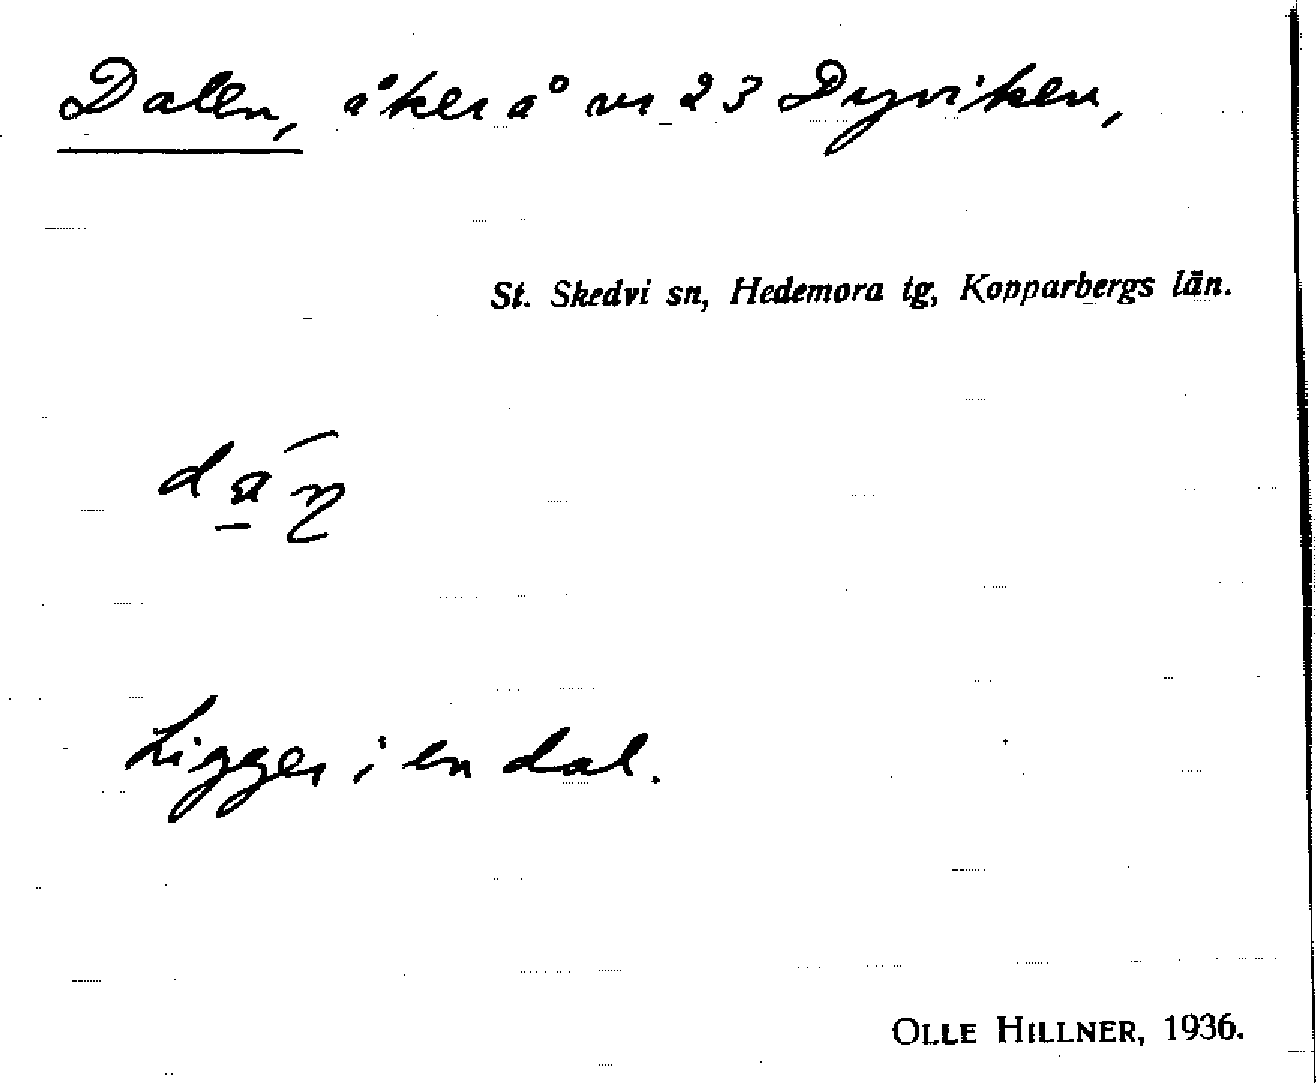 Dalen, åker å nr 23 Dyviken,
St. Skedvi sn, Hedemora tg, Kopparbergs län.
Ligger i en dal.
OLLE HILLNER, 1936.